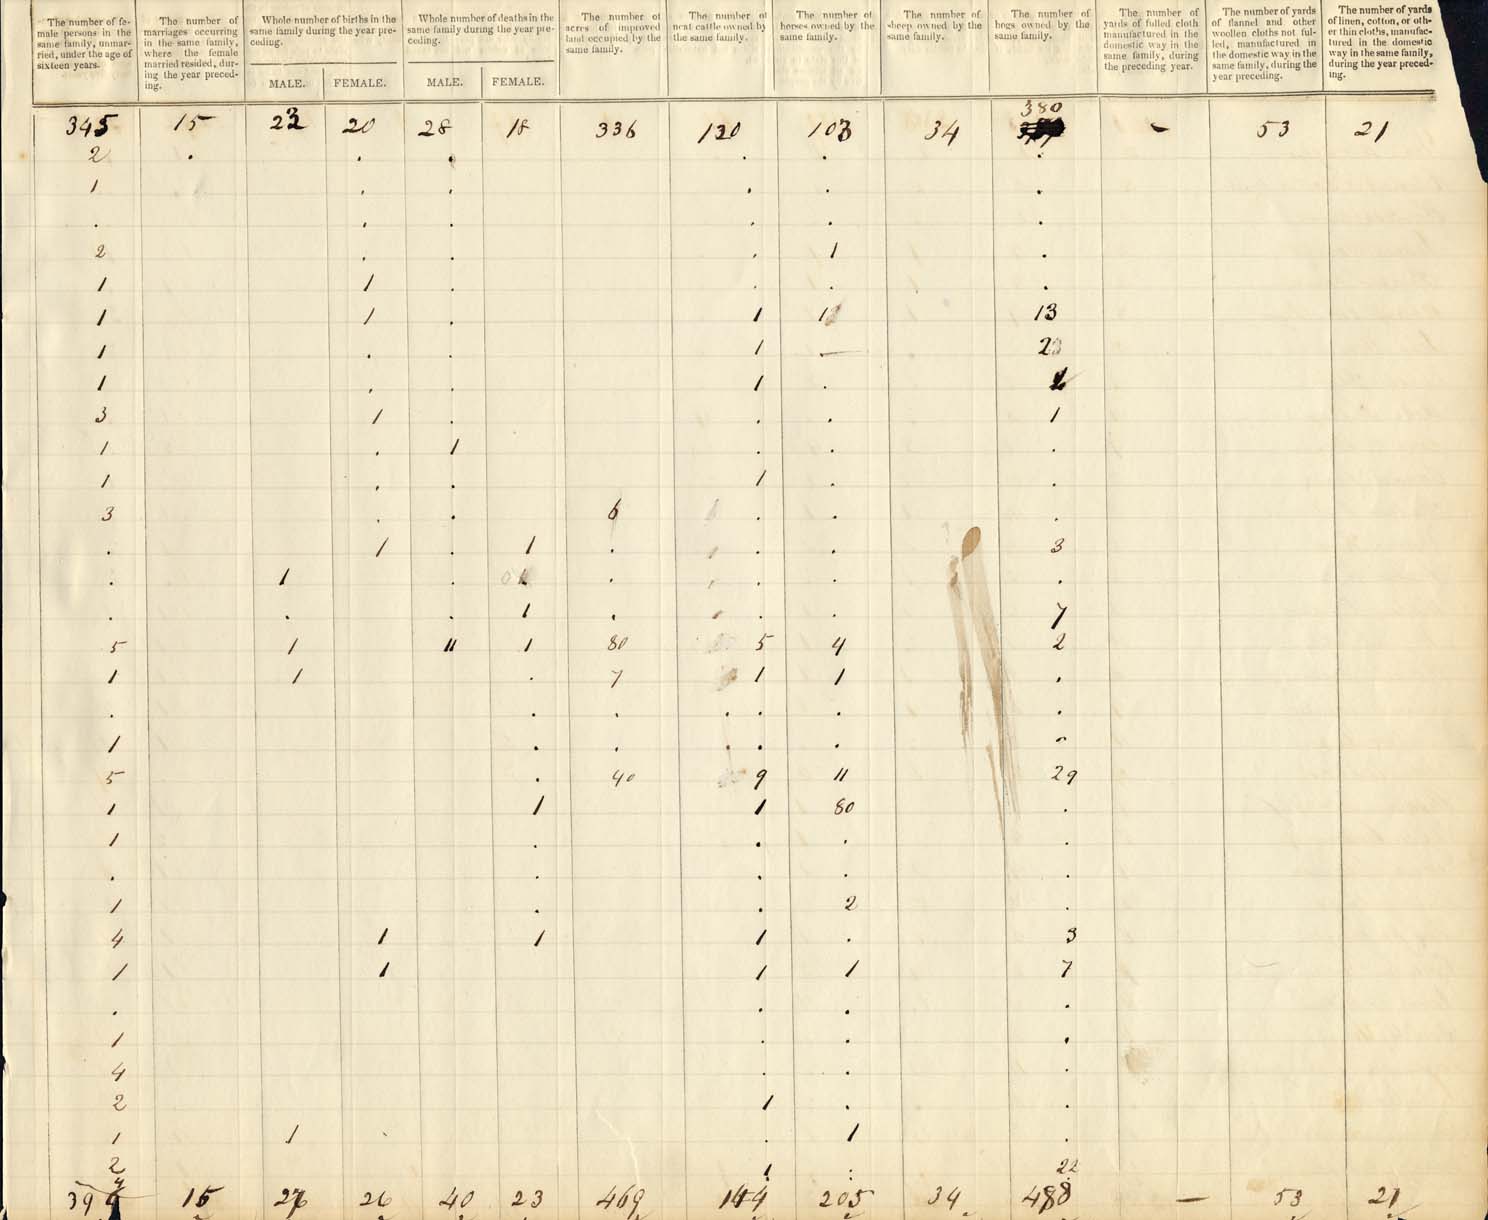 The number of fe-
male persons in the
same family, unmar-
ried, under the age of
sixteen years.
The number of
marriages occurring
in the same family,
where the female
married resided, dur-
ing the year preced-
ing.
Whole number of births in the
same family during the year pre-
ceding.
MALE. FEMALE.
Whole number of deaths in the
same family during the year pre-
ceding.
MALE. FEMALE.
The number of
acres of improved
land occupied by the
same family.
The number of
neat cattle owned by
the same family.
The number of
horses owned by the
same family.
The number of
sheep owned by the
same family.
The number of
hogs owned by the
same family.
The number of
yards of fulled cloth
manufactured in the
domestic way in the
same family, during
the preceding year.
The number of yards
of flannel and other
woollen cloths not ful-
led, manufactured in
the domestic way in the
same family, during the
year preceding.
The number of yards
of linen, cotton, or oth-
er thin cloths, manufac-
tured in the domestic
way in the same family,
during the year preced-
ing.
380
345 15 23 20 28 18 336 120 103 34 - 53 21
2 . . . . . .
1 . . . . .
. . . . . .
2 . . . 1 .
1 1 . . . .
1 1 . 1 1 13
1 . . 1 — 23
1 . . 1 .
3 1 . . . 1
1 . 1 . . .
1 . . 1 . .
3 . . 6 . . .
. 1 . 1 . . . 3
. 1 . . . . .
. . . 1 . . . 7
5 1 11 1 80 5 4 2
1 1 . 7 1 1 .
. . . . . . .
1 . . . . . .
5 . 40 9 11 29
1 1 1 80 .
1 . . . .
. . . . .
1 . . 2 .
4 1 1 1 . 3
1 1 1 1 7
. . . .
1 . . .
4 . . .
2 1 . .
1 1 . . 1 .
2 1 . 22
15 26 40 23 469 144 205 34 488 — 53 21